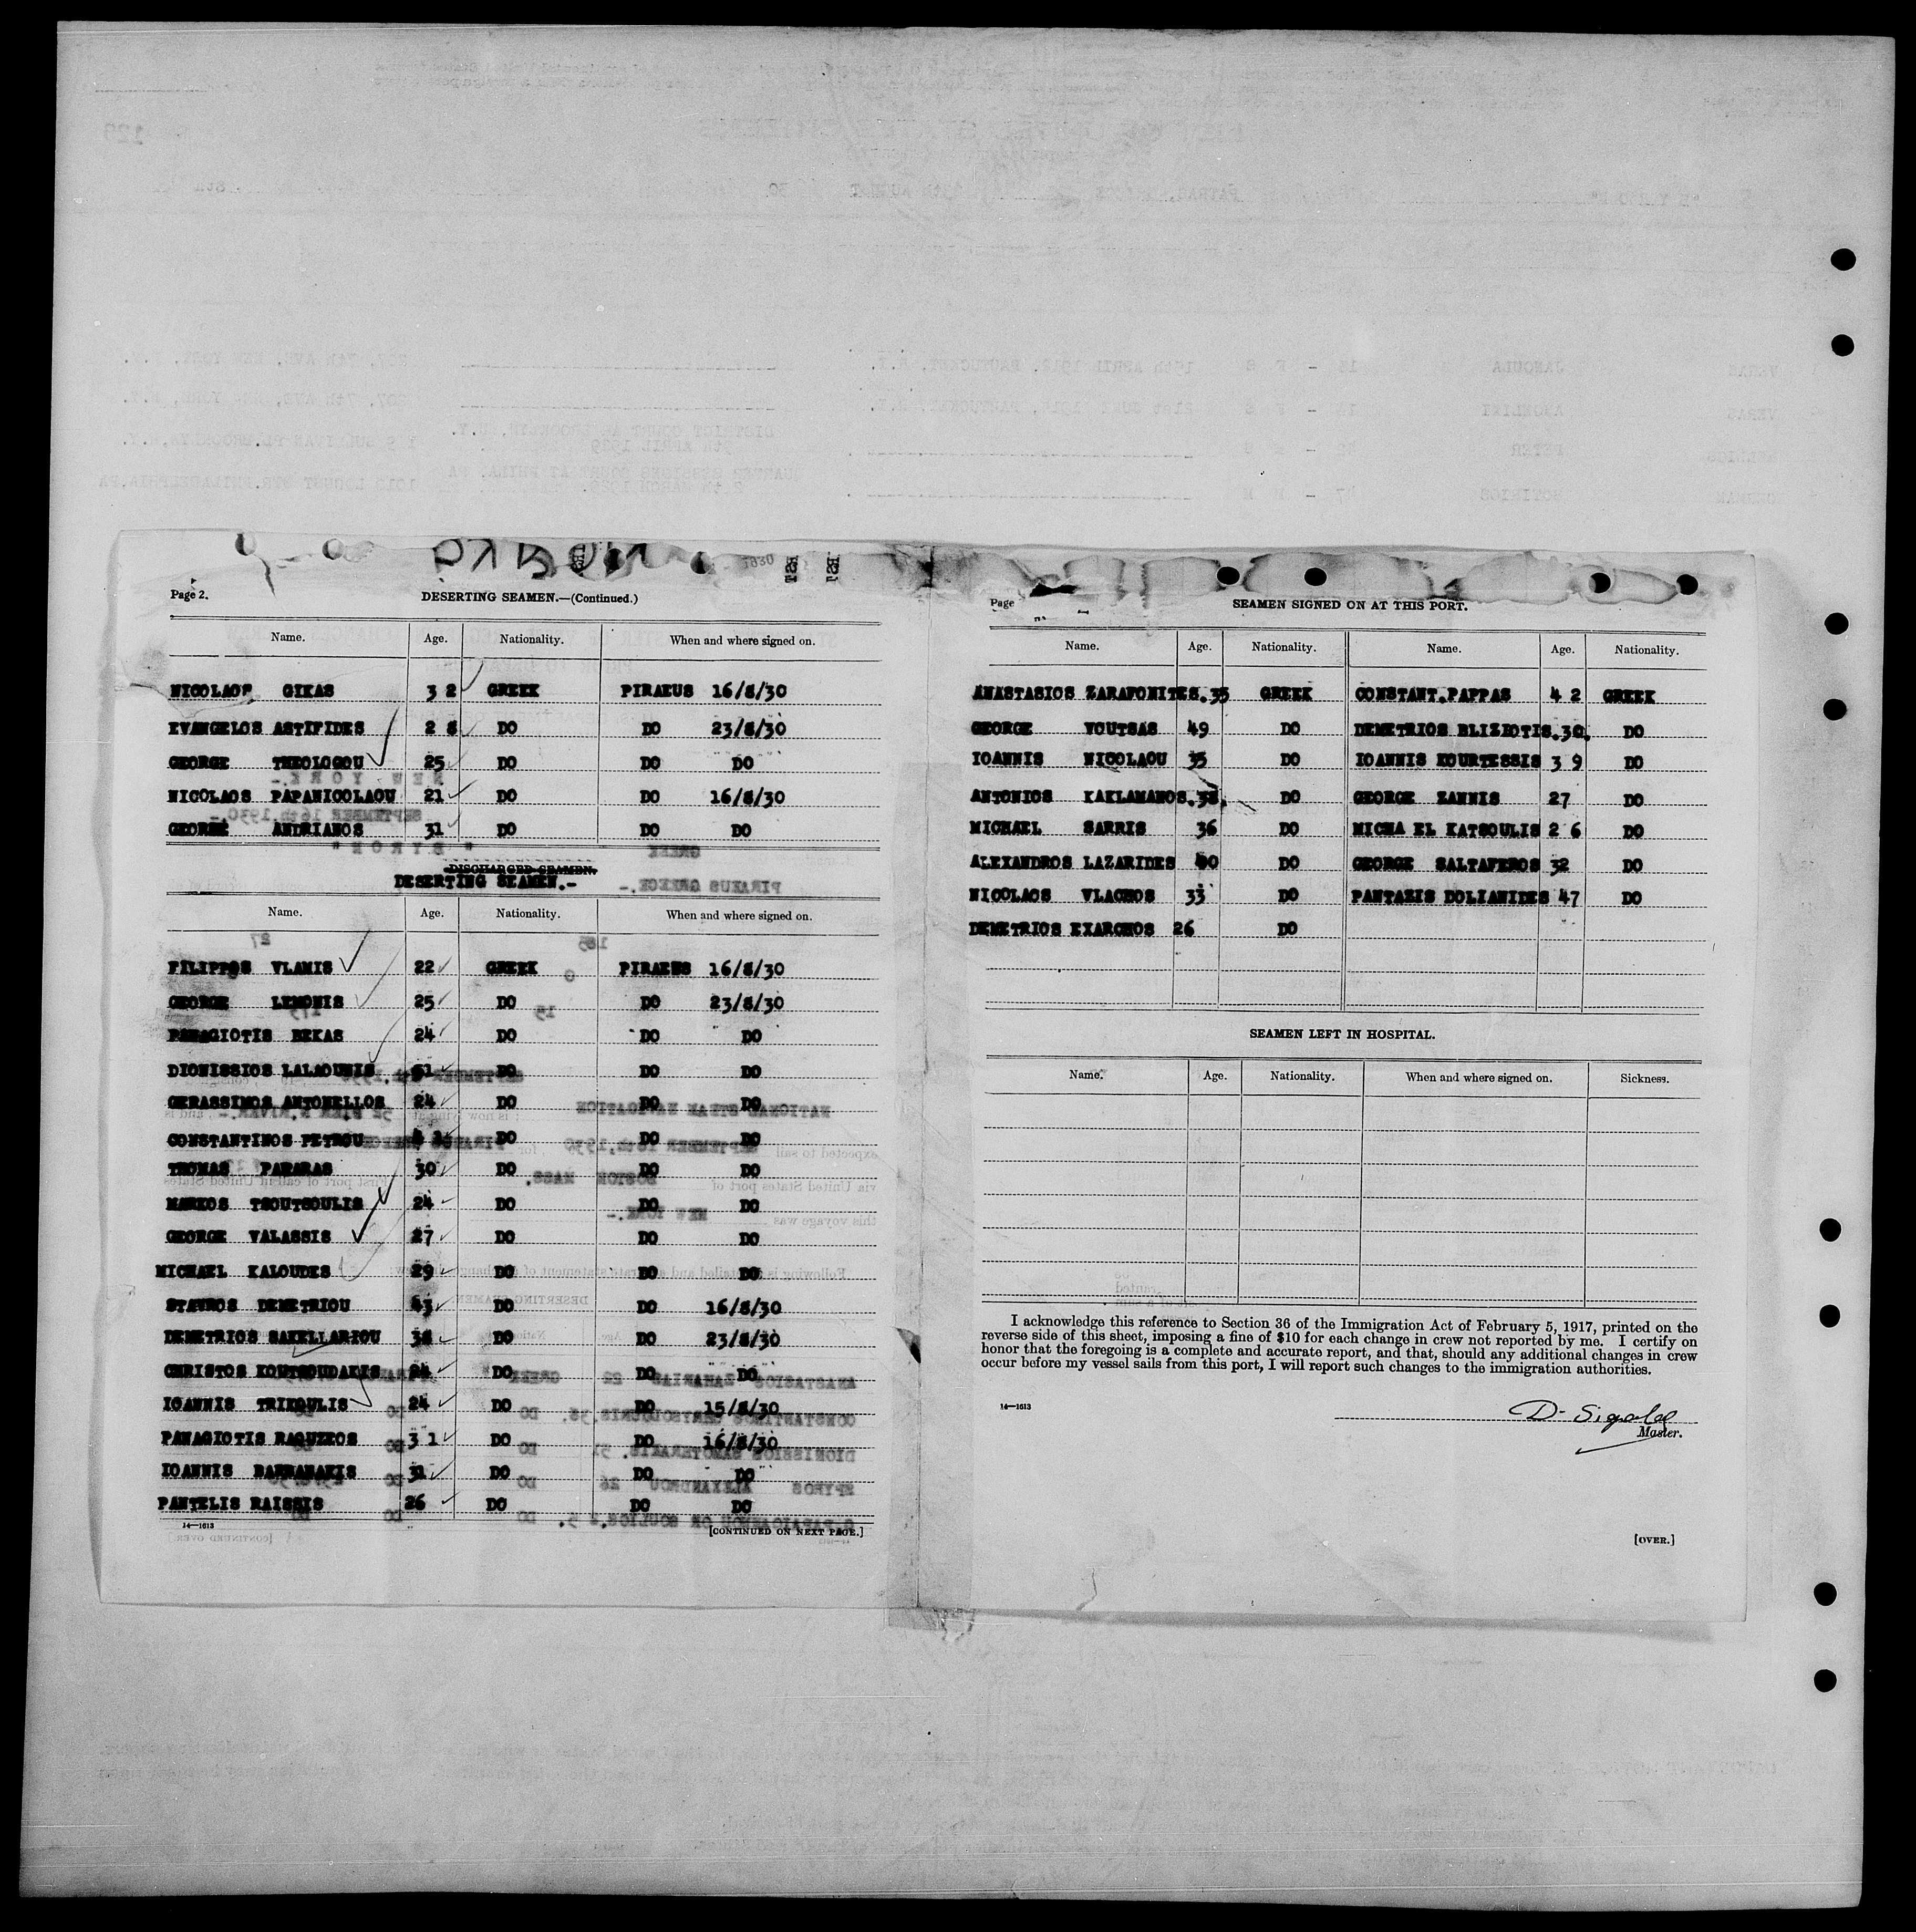 Page 2.
DESERTING SEAMEN.—(Continued.)
Name. Age. Nationality. When and where signed on.
NICOLAOS GIKAS 32 GREEK PIRAEUS 16/8/30
EVANGELOS ASTIFIDES 28 DO DO 23/8/30
GEORGE THEOLOGOU 25 DO DO DO
NICOLAOS PAPANICOLAOU 21 DO DO 16/8/30
GEORGE ANDRIANOS 31 DO DO DO
DISCHARGED SEAMEN.
DESERTING SEAMEN.-
Name. Age. Nationality. When and where signed on.
FILIPPOS VLAMIS 22 GREEK PIRAEUS 16/8/30
GEORGE LEMONIS 25 DO DO 23/8/30
PANAGIOTIS BEKAS 24 DO DO DO
DIONISSIOS LALAOUNIS 31 DO DO DO
GERASSIMOS ANTONELLOS 24 DO DO DO
CONSTANTINOS PETROU DO DO DO
THOMAS PARARAS 30 DO DO DO
MARKOS TSOUTSOULIS 24 DO DO DO
GEORGE VALASSIS 27 DO DO DO
MICHAEL KALOUDES 29 DO DO DO
STAVROS DEMETRIOU 43 DO DO 16/8/30
DEMETRIOS SAKELLARIOU 38 DO DO 23/8/30
CHRISTOS KOUTSOUDAKIS 24 DO DO DO
IOANNIS TRIKOULIS 24 DO DO 15/8/30
PANAGIOTIS RAGUZZOS 31 DO DO 16/8/30
IOANNIS BARMANAKIS 31 DO DO DO
PANTELIS RAISSIS 26 DO DO DO
14—1613
[CONTINUED ON NEXT PAGE.]
Page
SEAMEN SIGNED ON AT THIS PORT.
Name. Age. Nationality. Name. Age. Nationality.
ANASTASIOS ZARAFONITES.35 GREEK CONSTANT.PAPPAS 42 GREEK
GEORGE VOUTSAS 49 DO DEMETRIOS BLIZIOTIS.30. DO
IOANNIS NICOLAOU 35 DO IOANNIS KOURTESSIS 39 DO
ANTONIOS KAKLAMANOS.38. DO GEORGE ZANNIS 27 DO
MICHAEL SARRIS 36 DO MICHA EL KATSOULIS 26 DO
ALEXANDROS LAZARIDES 40 DO GEORGE SALTAFEROS 32 DO
NICOLAOS VLACHOS 33 DO PANTAZIS DOLIANIDES 47 DO
DEMETRIOS EXARCHOS 26 DO
SEAMEN LEFT IN HOSPITAL.
Name. Age. Nationality. When and where signed on. Sickness.
I acknowledge this reference to Section 36 of the Immigration Act of February 5, 1917, printed on the
reverse side of this sheet, imposing a fine of $10 for each change in crew not reported by me. I certify on
honor that the foregoing is a complete and accurate report, and that, should any additional changes in crew
occur before my vessel sails from this port, I will report such changes to the immigration authorities.
14—1613
Master.
[OVER.]